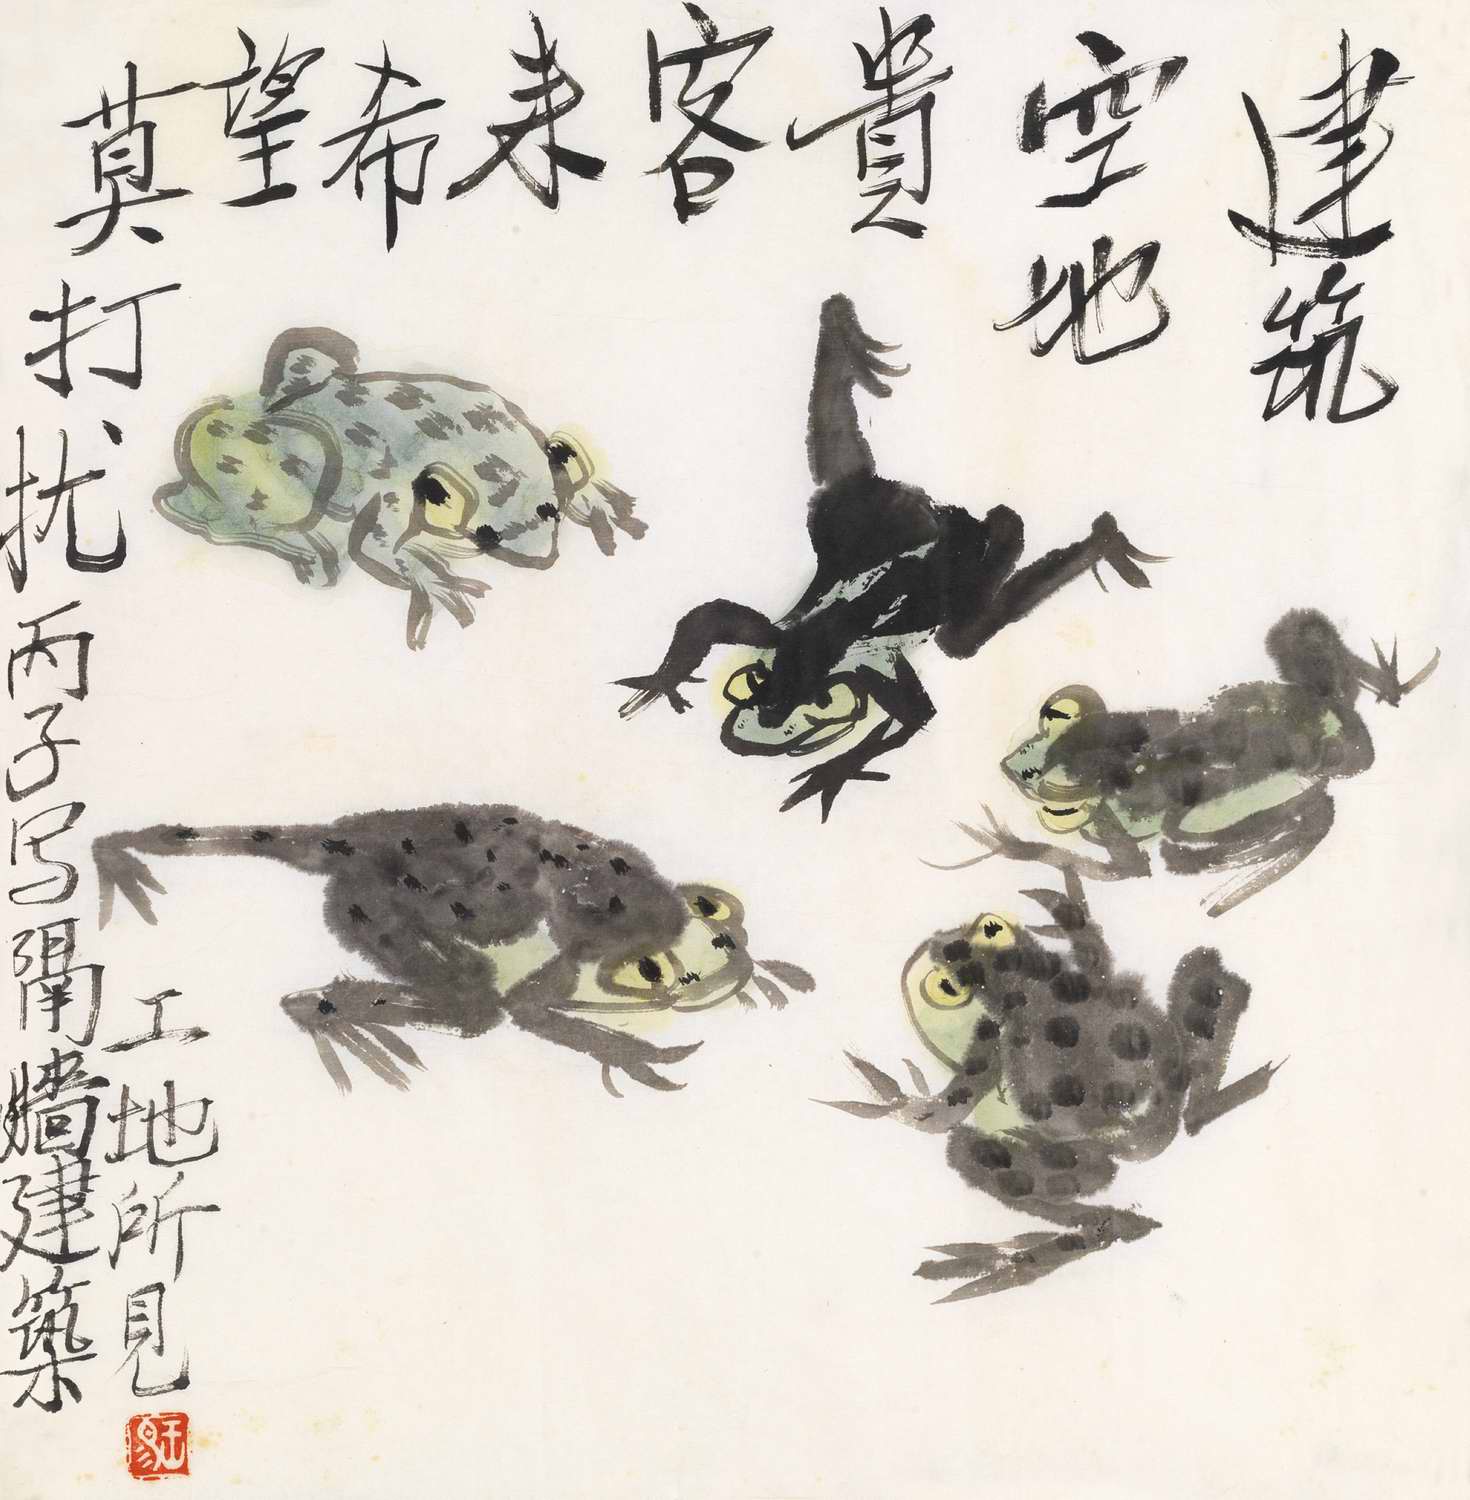 建筑
空地
貴
客
来
希
望
莫打扰丙子写隔墙建築
工地所見